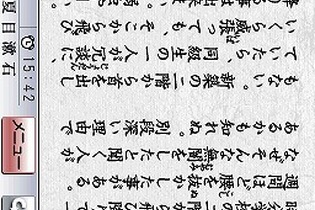 週間ほど腰を抜かした事がある。
なぜそんな無闇をしたと聞く人が
あるかも知れぬ。別段深い理由で
もない。新築の二階から首を出し
ていたら、同級生の一人が冗談に
いくら威張っても、そこから飛び
夏目漱石
15:42
メニュー